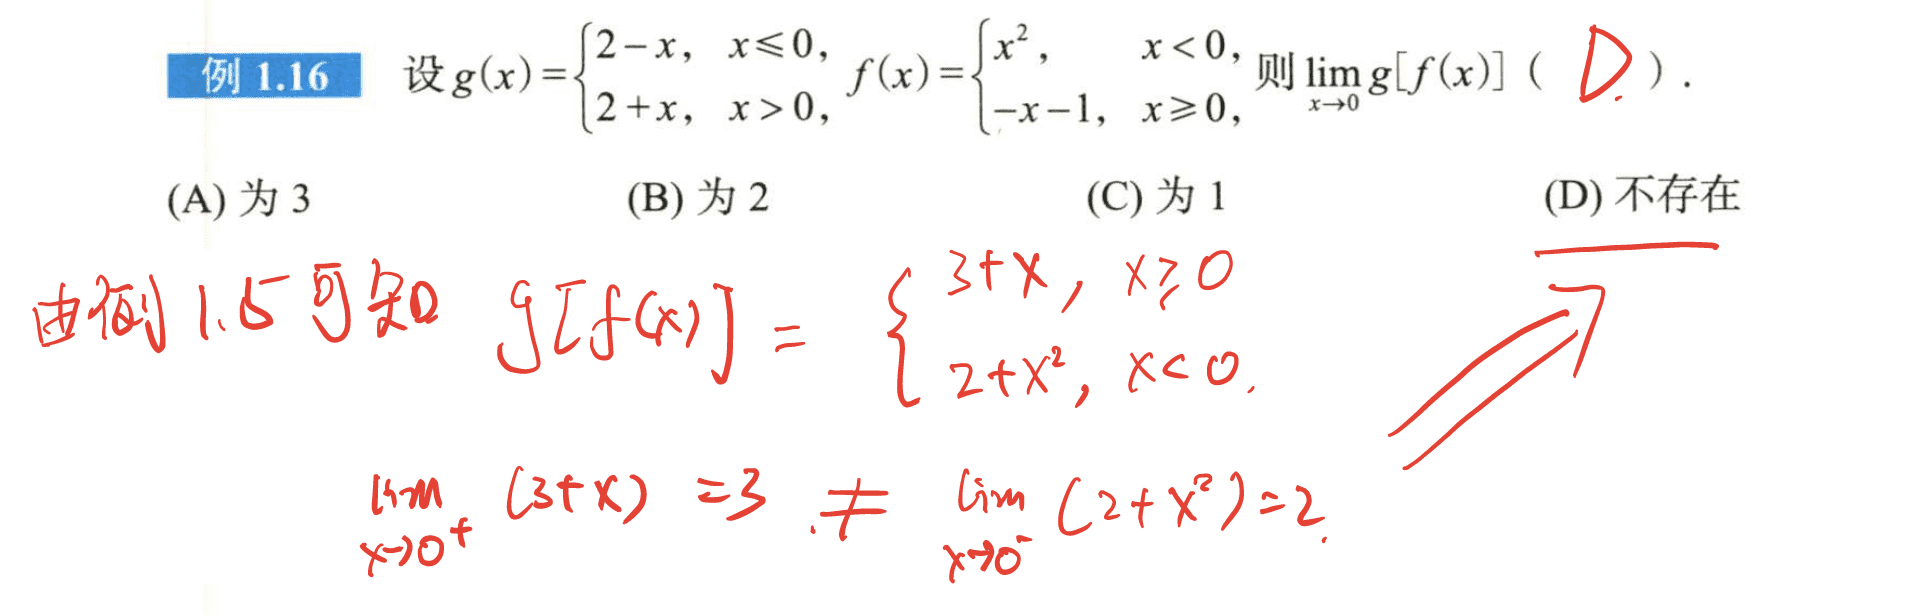 例 1.16 设 g(x)={2-x, x≤0, 2+x, x>0, f(x)={x², x<0, -x-1, x≥0, 则 lim x→0 g[f(x)] ( D. ).
(A) 为 3 (B) 为 2 (C) 为 1 (D) 不存在
由例 1.5 可知 g[f(x)] = { 3+x, x≥0 2+x², x<0.
lim x→0⁺ (3+x) =3 ≠ lim x→0⁻ (2+x²)=2.